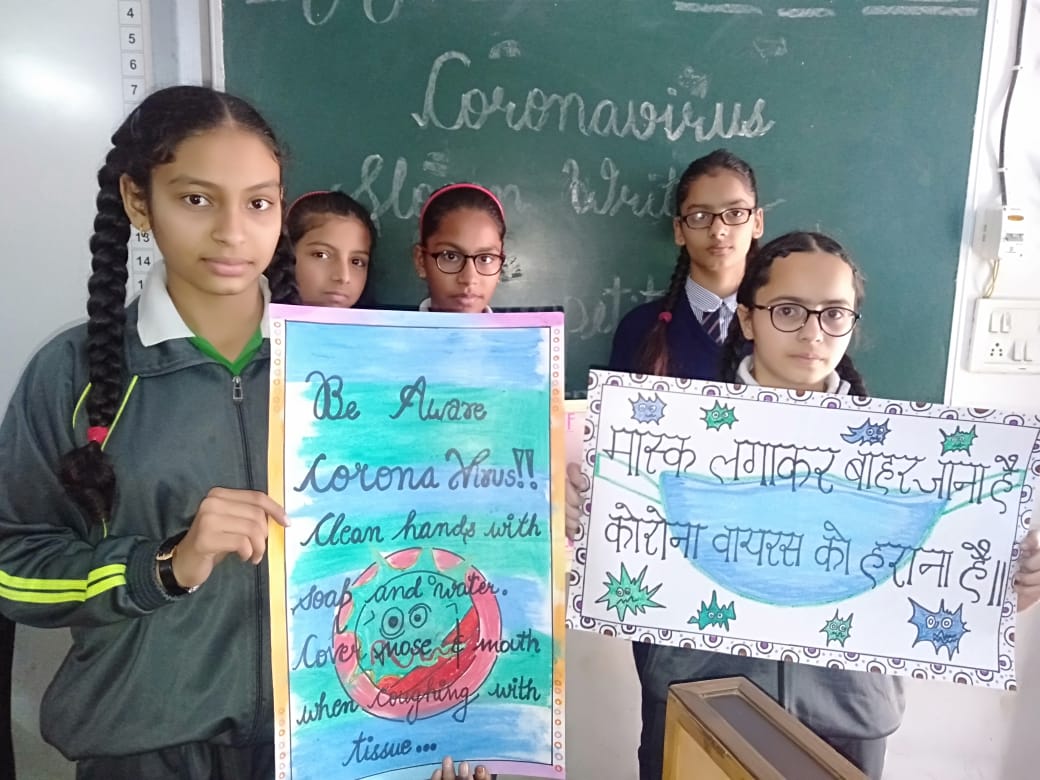 Coronavirus
Slogan Writ
petit
Be Aware
Corona Virus!!
Clean hands with
soap and water.
Cover nose & mouth
when coughing with
tissue...
मास्क लगाकर बाहर जाना है
कोरोना वायरस को हराना है॥
4
5
6
7
13
14